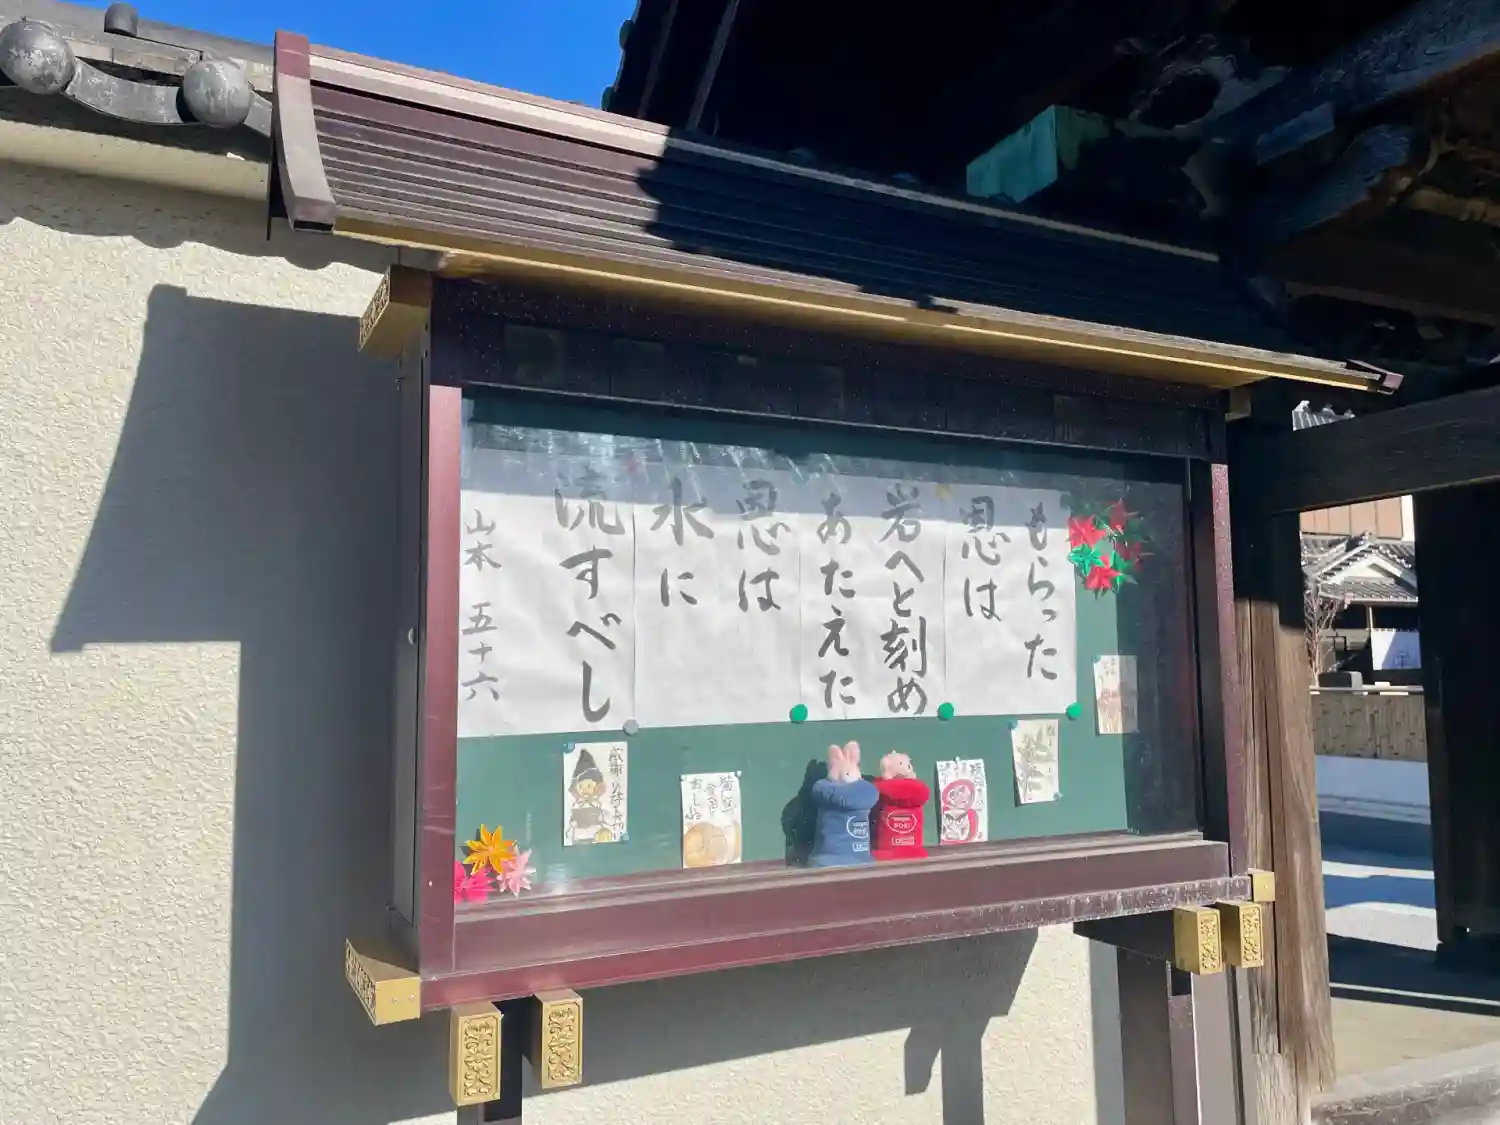 もらった
恩は
岩へと刻め
あたえた
恩は
水に
流すべし
山本 五十六